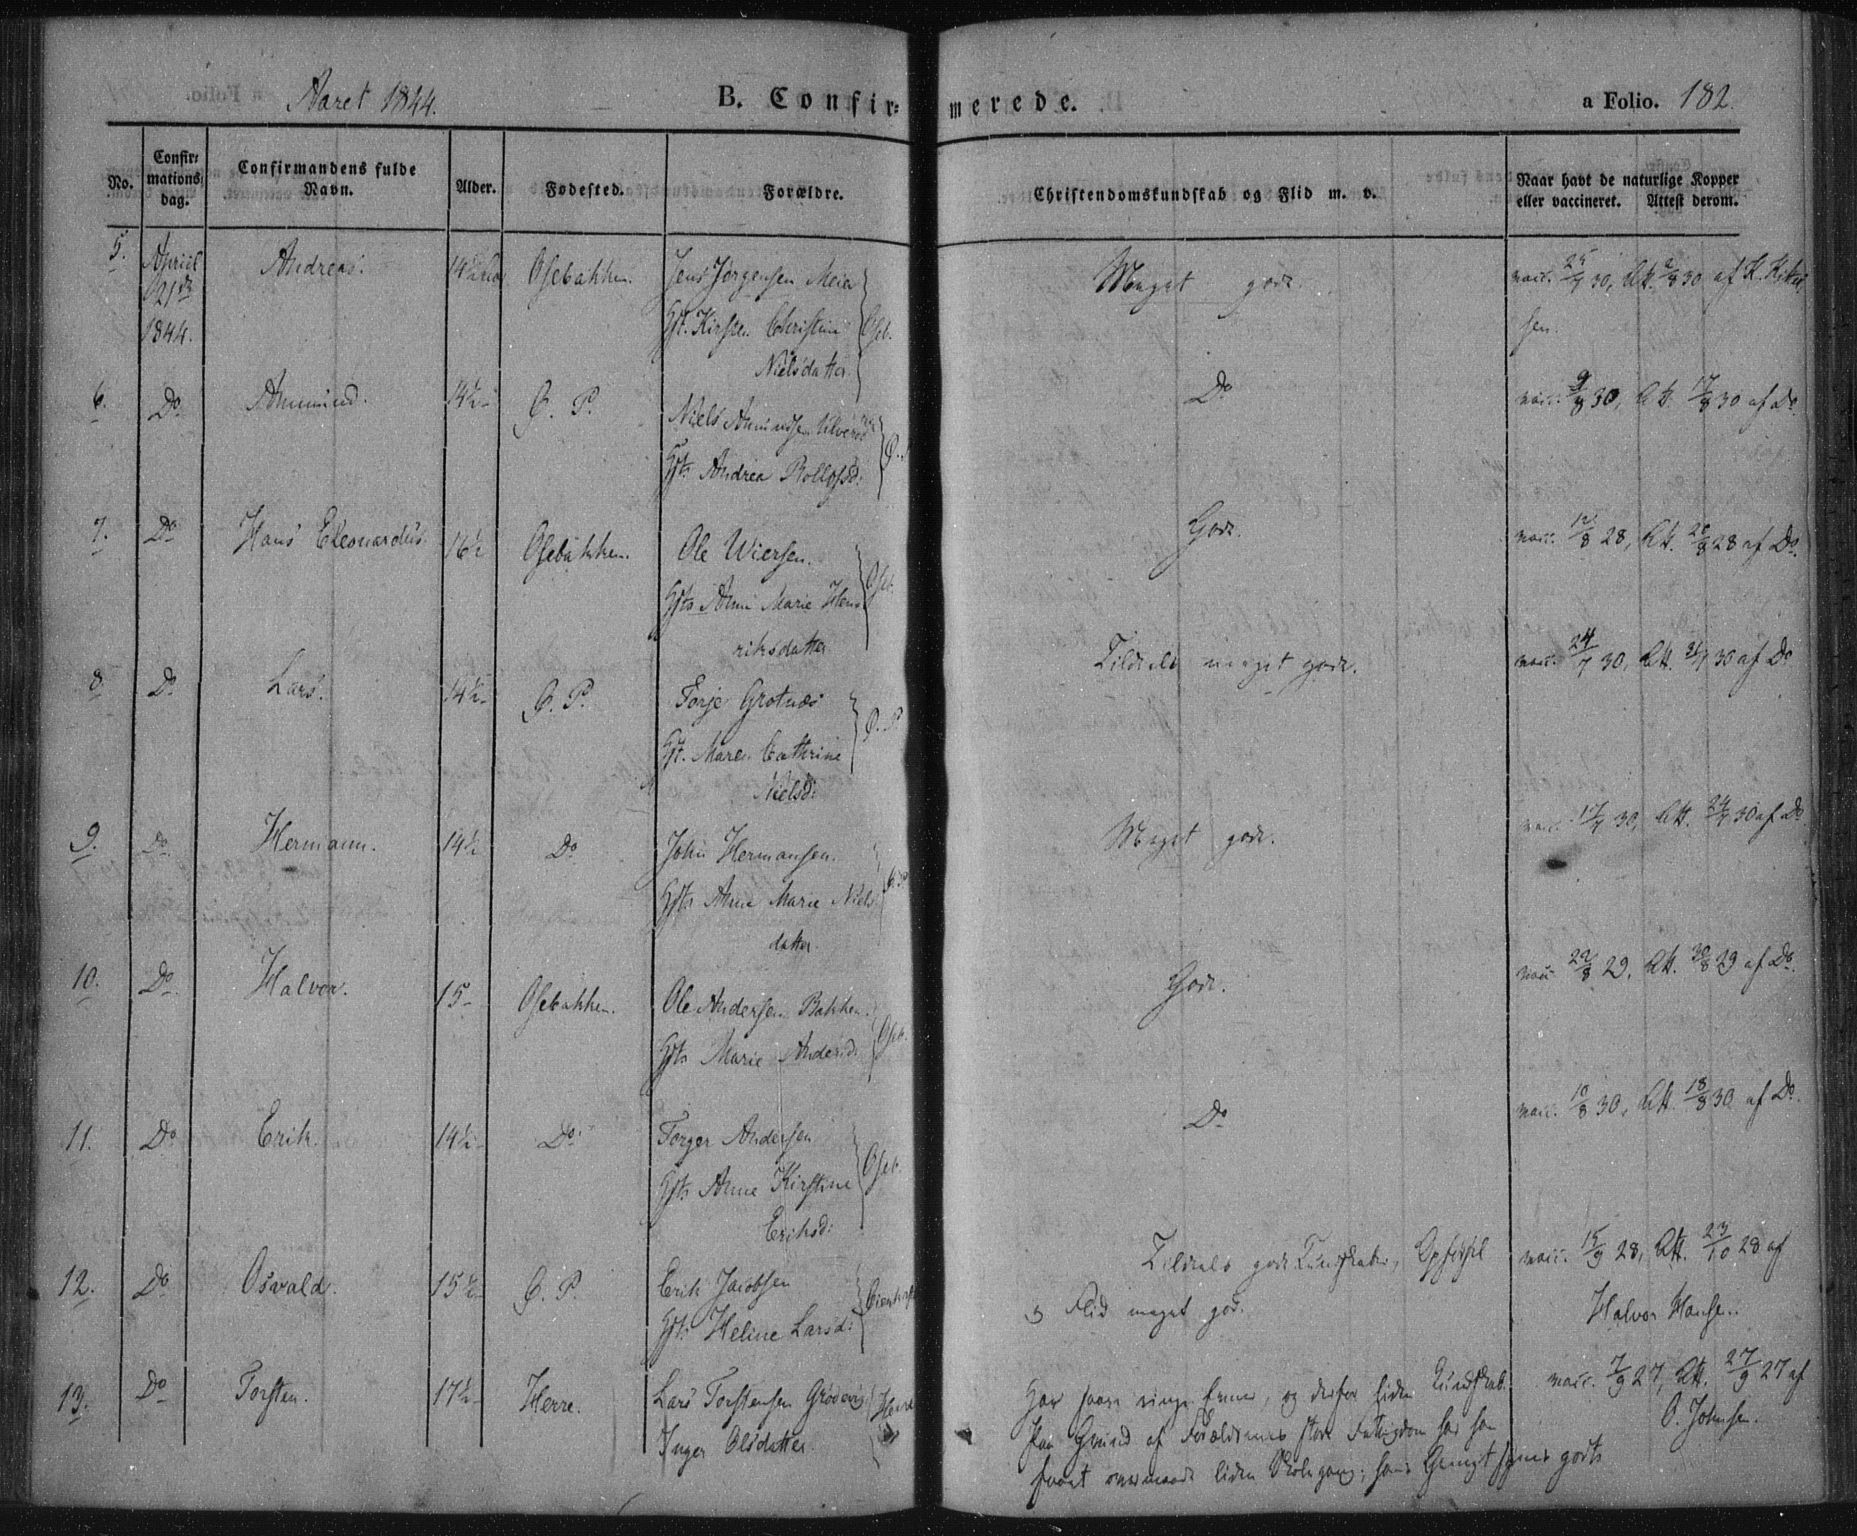 Aaret 1844. B. Confirmerede. a Folio. 182.
No. Confirmationsdag. Confirmandens fulde Navn. Alder. Fødested. Forældre. Christendomskundskab og Flid m. v. Naar havt de naturlige Kopper eller vaccineret. Attest derom.
5. April 21de 1844. Andreas. 14½ Osebakken. Jens Jørgensen Meier
Gst. Kirsten Christine
Nielsdatter } Oseb. Meget god. vacc. 25/7 30, Att. 2/8 30 af K.
sen.
6. Do Anmund. 14½ P. Niels Anmundsen
Gst. Andrea Rollofsd: Do vacc. 9/8 30, Att. 17/8 30 af Do.
7. Do Hans Eleonardus. 16½ Osebakken. Ole Wiersen.
Gst. Anne Marie Hen-
riksdatter } Oseb. God. vacc. 12/8 28, Att. 20/8 28 af Do.
8. Do Lars. 14½ P. Torje Grotnæs
Gst. Maren Cathrine
Nielsd: Tildeels meget god. vacc. 24/7 30, Att. 31/7 30 af Do
9. Do Hermann. 14½ Do John Hermansen.
Gst. Anne Marie Niels
datter. Meget god. vacc. 17/7 30, Att. 24/7 30 af Do
10. Do Halvor. 15 Osebakken. Ole Andersen Bakken.
Gst. Marie Andersd: } Oseb. God. vacc. 22/8 29, Att. 30/8 29 af Do.
11. Do Erik. 14½ Do Torger Andersen
Gst. Anne Kirstine
Eriksd: } Oseb. Do vacc. 10/8 30, Att. 18/8 30 af Do.
12. Do Osvald. 15½ P. Erik Jacobsen
Gst. Heline Larsd: Tildeels gode Kundskaber, Opførsel
og Flid meget god. vacc. 15/9 28, Att. 23/10 28 af
Halvor Hansen.
13. Do Torsten. 17½ Herre. Lars Torstensen Grødevig
Inger Olsdatter } Herre Har saare ringe Evner, og derfor liden Kundskab.
Paa Grund af Forældrenes store Fattigdom har han
havt overmaade liden Skolegang; hans Gemyt synes godt. vacc. 7/9 27, Att. 27/9 27 af
O. Johnsen.